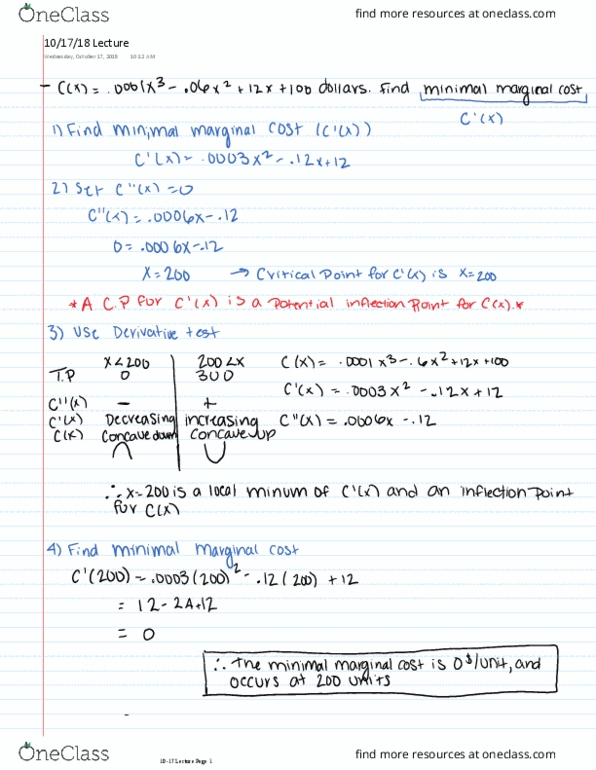 OneClass find more resources at oneclass.com
10/17/18 Lecture
Wednesday, October 17, 2018 10:12 AM
- C(x) = .0001x³ - .06x² + 12x + 100 dollars. Find minimal marginal cost
C'(x)
1) Find minimal marginal cost (C'(x))
C'(x) = .0003x² - .12x + 12
2) Set C''(x) = 0
C''(x) = .0006x - .12
0 = .0006x - .12
x = 200 → Critical Point for C'(x) is x = 200
* A C.P for C'(x) is a Potential inflection Point for C(x).*
3) Use Derivative test
x < 200 200 < x C(x) = .0001x³ - .6x² + 12x + 100
T.P 0 300
C'(x) = .0003x² - .12x + 12
C''(x) - +
C'(x) Decreasing increasing C''(x) = .0006x - .12
C(x) Concave down concave up
∴ x = 200 is a local minum of C'(x) and an inflection point
for C(x)
4) Find minimal marginal cost
C'(200) = .0003(200)² - .12(200) + 12
= 12 - 24 + 12
= 0
∴ The minimal marginal cost is 0 $/unit, and
occurs at 200 units
OneClass 10-17 Lecture Page 1 find more resources at oneclass.com